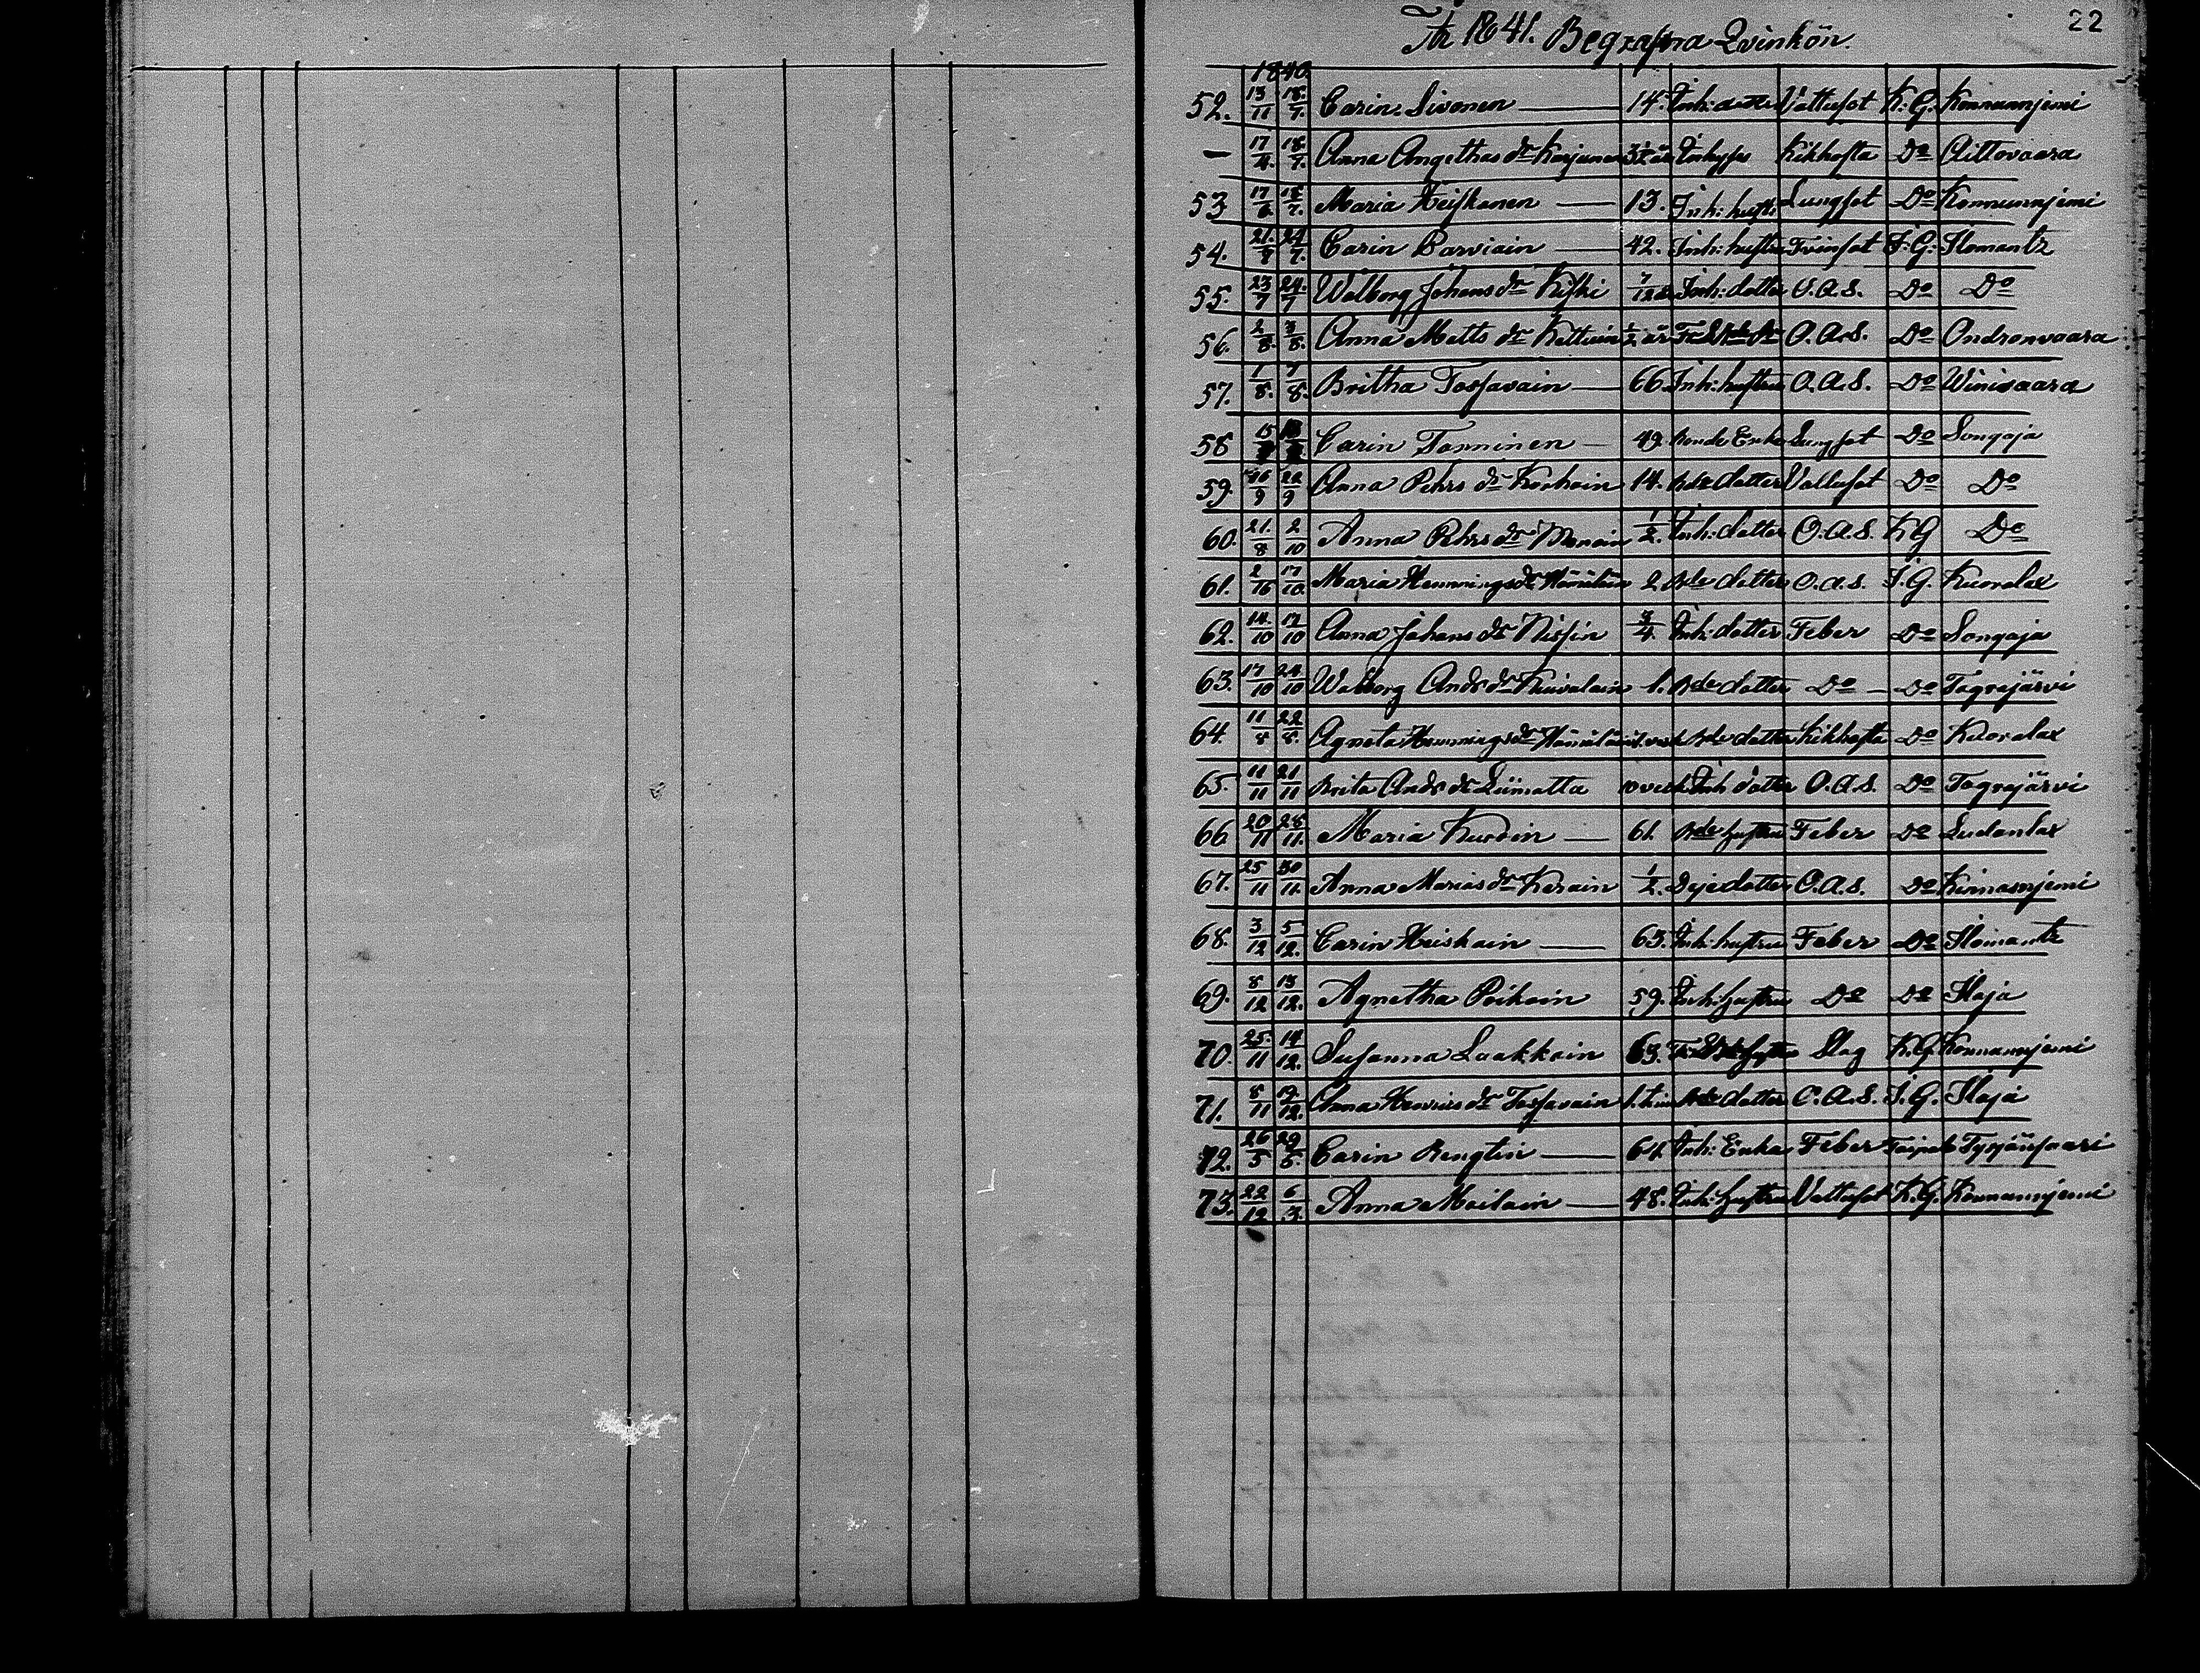 22
År 1841. Begrafna Qvinkön.
1840.
52. 13/11 18/7. Carin Sivonen 14. Inh: dotter Vattusot K. G. Konnunnjemi
— 17/4. 18/7. Anna Angethas dr Karjunen 3½ år Inhyses Kikhosta Do Aittovaara
53 17/6. 18/7. Maria Heiskanen 13. Inh: hustr. Lungsot Do Konnunnjemi
54. 21/7 24/7. Carin Parviain 42. Inh: hustru Tvinsot I. G. Ilomantz
55. 23/7 24/7 Walborg Johans dr Kiski 7/12 Inh: dotter O. A. S. Do Do
56. 2/8. 3/8. Anna Matts dr Kettuin ½ år O. A. S. Do Ondronvaara
57. 1/8. 7/8. Britha Tossavain 66. Inh: hustru O. A. S. Do Winivaara
58 15 Carin Tanninen 49. Bonde Enka Lungsot Do Songaja
59. 16/9 22/9 Anna Pehrs dr Korhoin 14. Bde dotter Vattusot Do Do
60. 21/8 2/10 Anna Pehrs dr Monoin ½. Inh: dotter O. A. S. K G Do
61. 2/10 17/10. Maria Hennings dr Hämäläin 2. Bde dotter O. a. S. I. G. Kuoralax
62. 14/10 17/10 Anna Johans dr Nissin ¾. Inh: dotter Feber Do Songaja
63. 17/10 24/10 Walborg Ands dr Kuivalain 1. Bde dotter Do Do Tograjärvi
64. 11/8 22/8. Agneta Hennings dr Hämäläin veck Bde dotter Kikhosta Do Kuoralax
65. 11/11 21/11 Brita Ands dr Liimatta 10 veck Inh dotter O. A. S. Do Tograjärvi
66 20/11 28/11. Maria Kuroin 61. Bde hustru Feber Do Ludanlax
67. 25/11 30/11. Anna Marias dr Kerain ½. Deje dotter O. A. S. Do Kinnasnjemi
68. 3/12 5/12. Carin Heiskain 63. Inh: hustru Feber Do Ilomantz
69. 8/12 13/12. Agnetha Poikoin 59. Inh: hustru Do Do Ilaja
70. 25./11 14/12. Susanna Laakkoin 63. hustru Slag K. G. Konnunnjemi
71. 8/11 19/12. Anna Henriks dr Tossavain 1. tim Bde dotter O. A. S. I. G. Ilaja
72. 26/5 29/5. Carin Bengtin 64. Inh: Enka Feber Taipale Tyrjänsaari
73. 22/12 6/3. Anna Moilain 48. Inh: hustru Vattusot K. G. Konnunnjemi